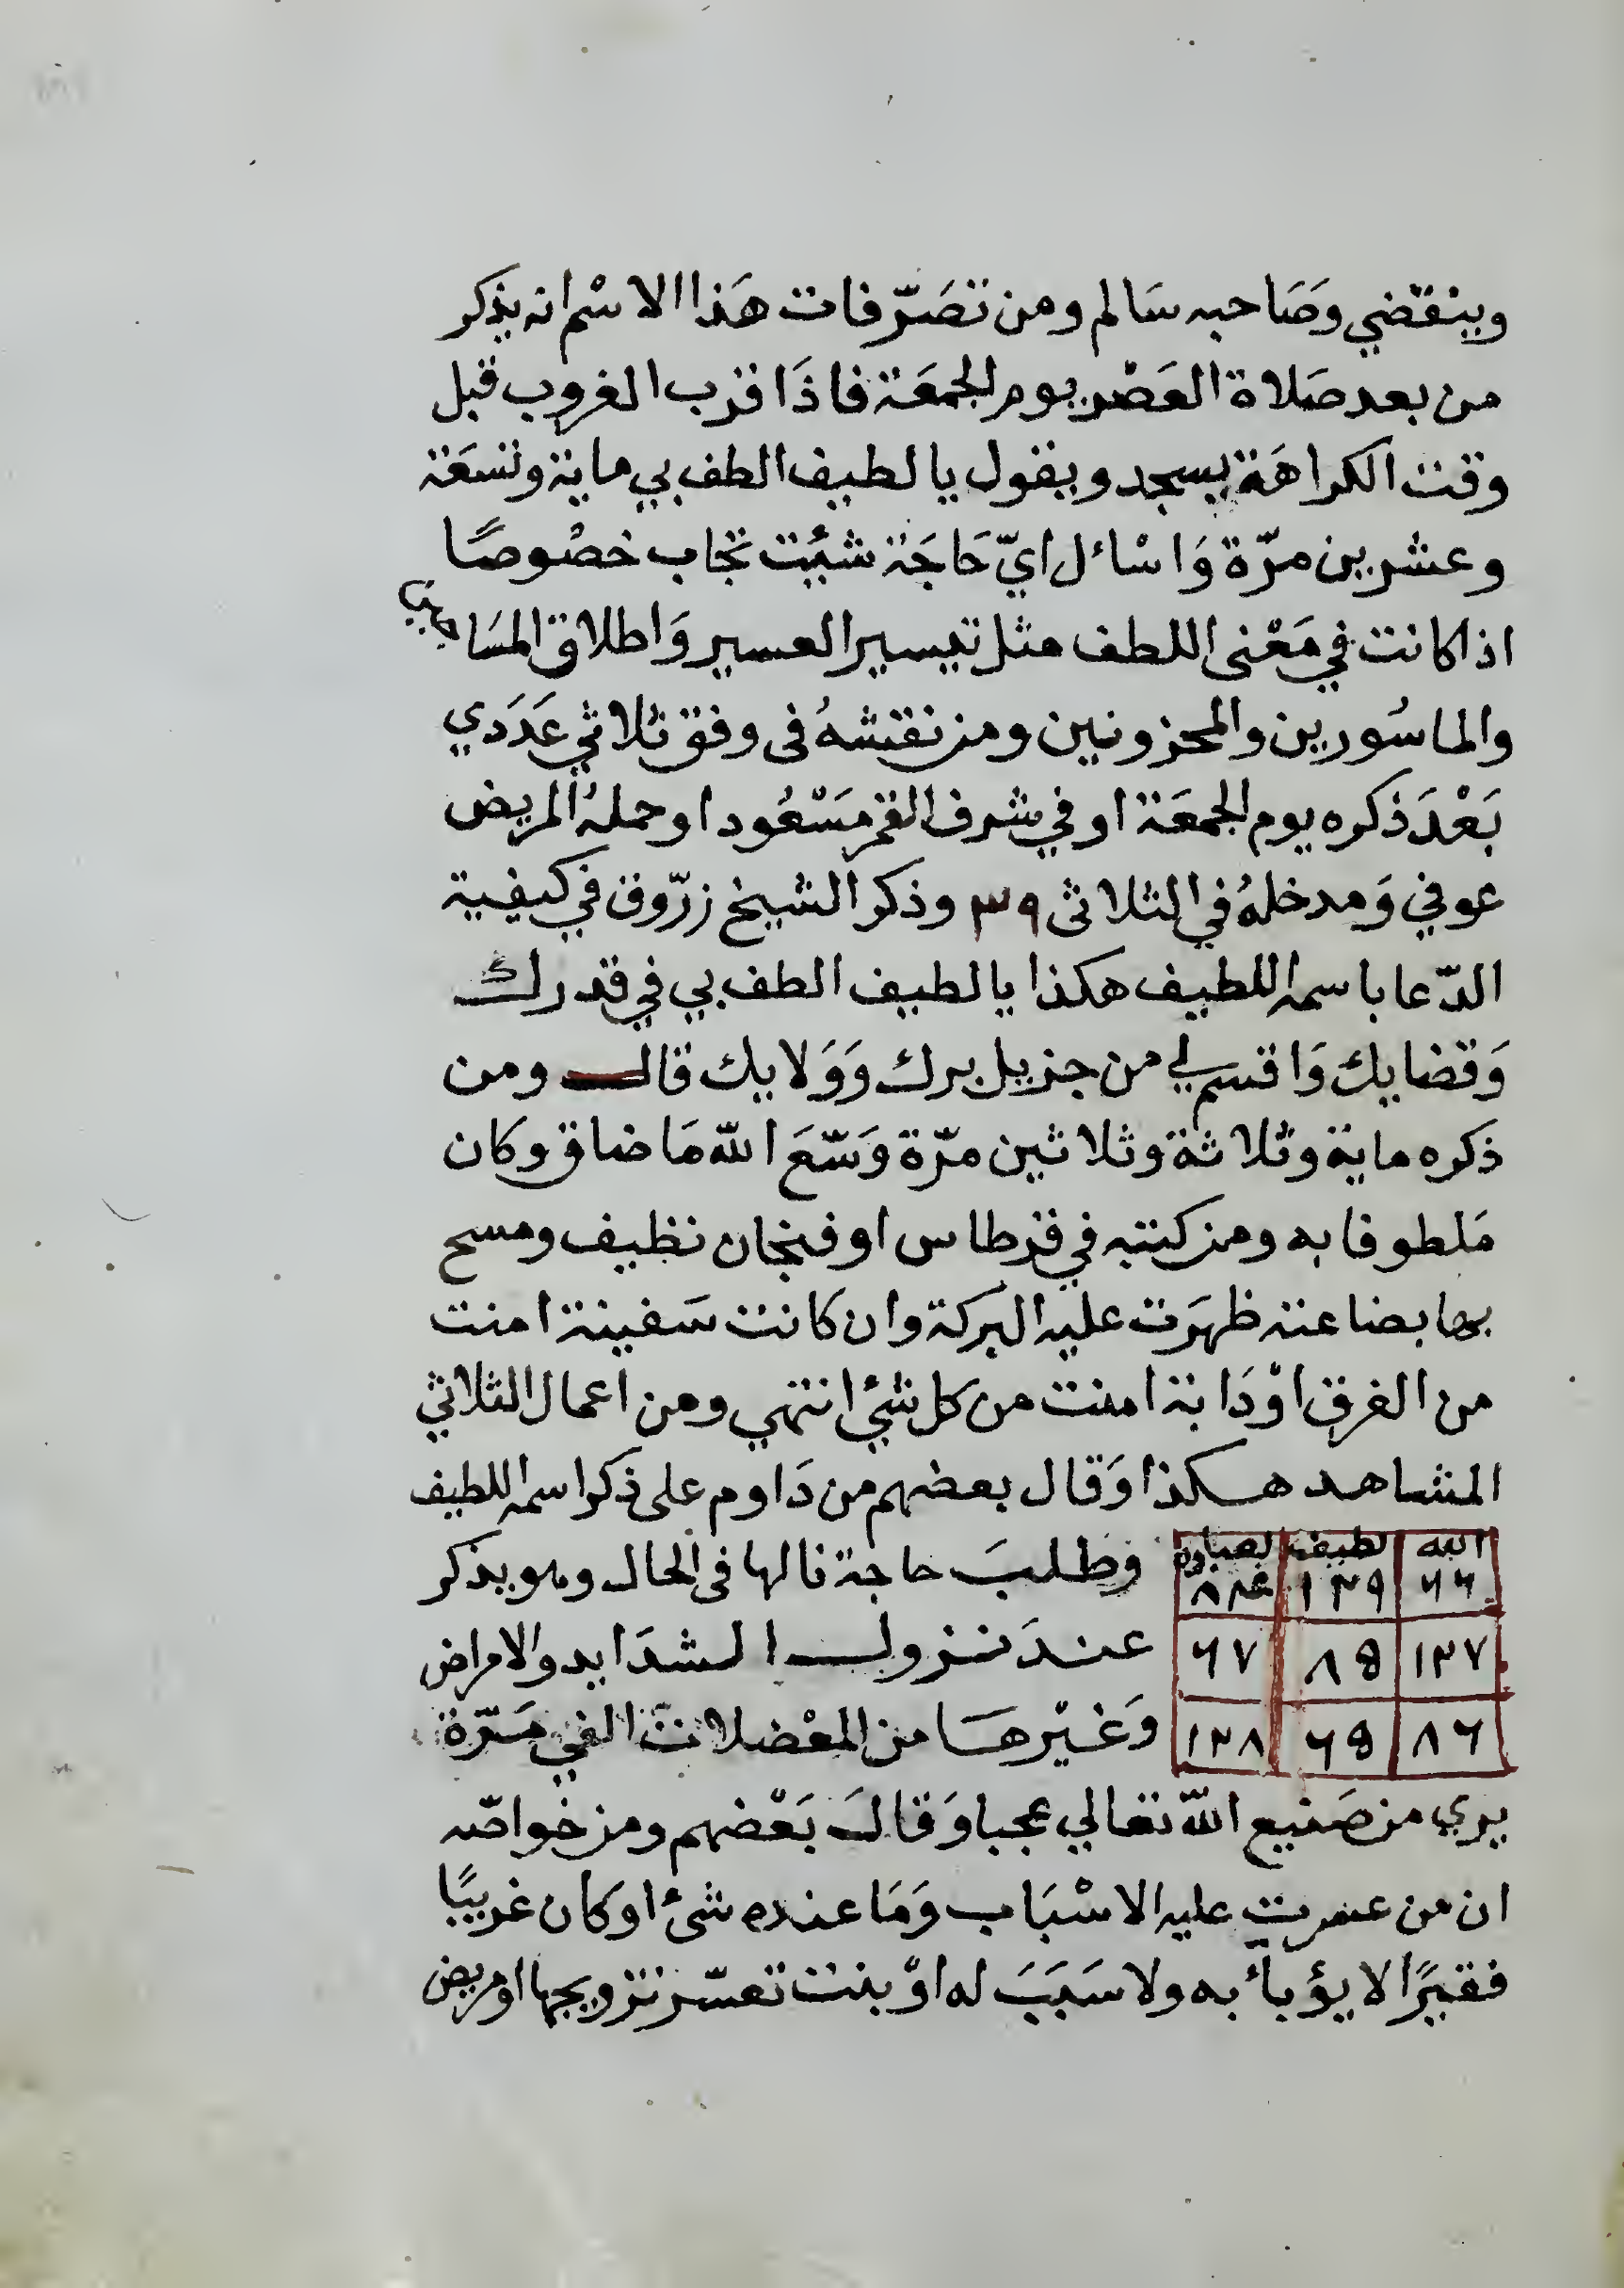 وينقضي وَصَاحبه سَالم ومن تصَرّفات هَذا الاسْم انه يذكر
من بعد صَلاة العَصْر يوم الجمعَة فاذَا قرب الغروب قبل
وقت الكراهَة يسجد ويقول يا لطيف الطف بي ماية وتسعَة
وعشرين مرّة وَاسْائل ايّ حَاجَة شئت تجاب خصْوصًا
اذا كانت في مَعْنى اللطف مثل تيسير العسير وَاطلاق المسَاجين
والماسُورين والمحزونين ومن نقشهُ فى وفق ثلاثي عَدَدي
بَعْدَ ذكره يوم الجمعَة او في شرف القمر مَسْعُود او حملهُ المريض
عوفي وَمدخلهُ في الثلاثى ٣٩ وذكر الشيخ زرّوق في كيفية
الدّعا باسمه اللطيف هكذا يا لطيف الطف بي في قدرك
وَقضايك وَاقسم لي من جزيل برك وَوَلايك قال ومن
ذكره ماية وثلاثة وثلاثين مرّة وَسّعَ الله مَا ضاق وكان
مَلطوفا به ومن كتبه في قرطاس او فنجان نظيف ومسح
بها بضاعته ظهرَت عليه البركة وان كانت سَفينة امنت
من الغرق اوْ دَابة امنت من كل شئ انتهي ومن اعمال الثلاثي
المشاهد هكذا وَقال بعضهم من دَاوم على ذكر اسمه اللطيف
الله لطيف بعباده
٦٦ ١٢٩ ٨٨٤
١٢٧ ٨٥ ٦٧
٨٦ ٦٥ ١٢٨
وطلبَ حاجة نالها فى الحال وهو يذكر
عندَ نزول الشدَايد والامراض
وَغيْرهَا من المعْضلات الفي مَرّة
يري من صَنيع الله تعالي عجبا وَقالَ بَعْضهم ومن خواصّه
ان من عسرت عليه الاسْبَاب وَمَا عنده شئ او كَان غريبًا
فقيرًا لا يؤبأ به ولا سَبَبَ له اوْ بنت تعسّر تزويجها او مريض